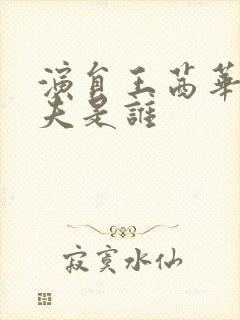 演員王茜華
夫是誰
寂寞水仙